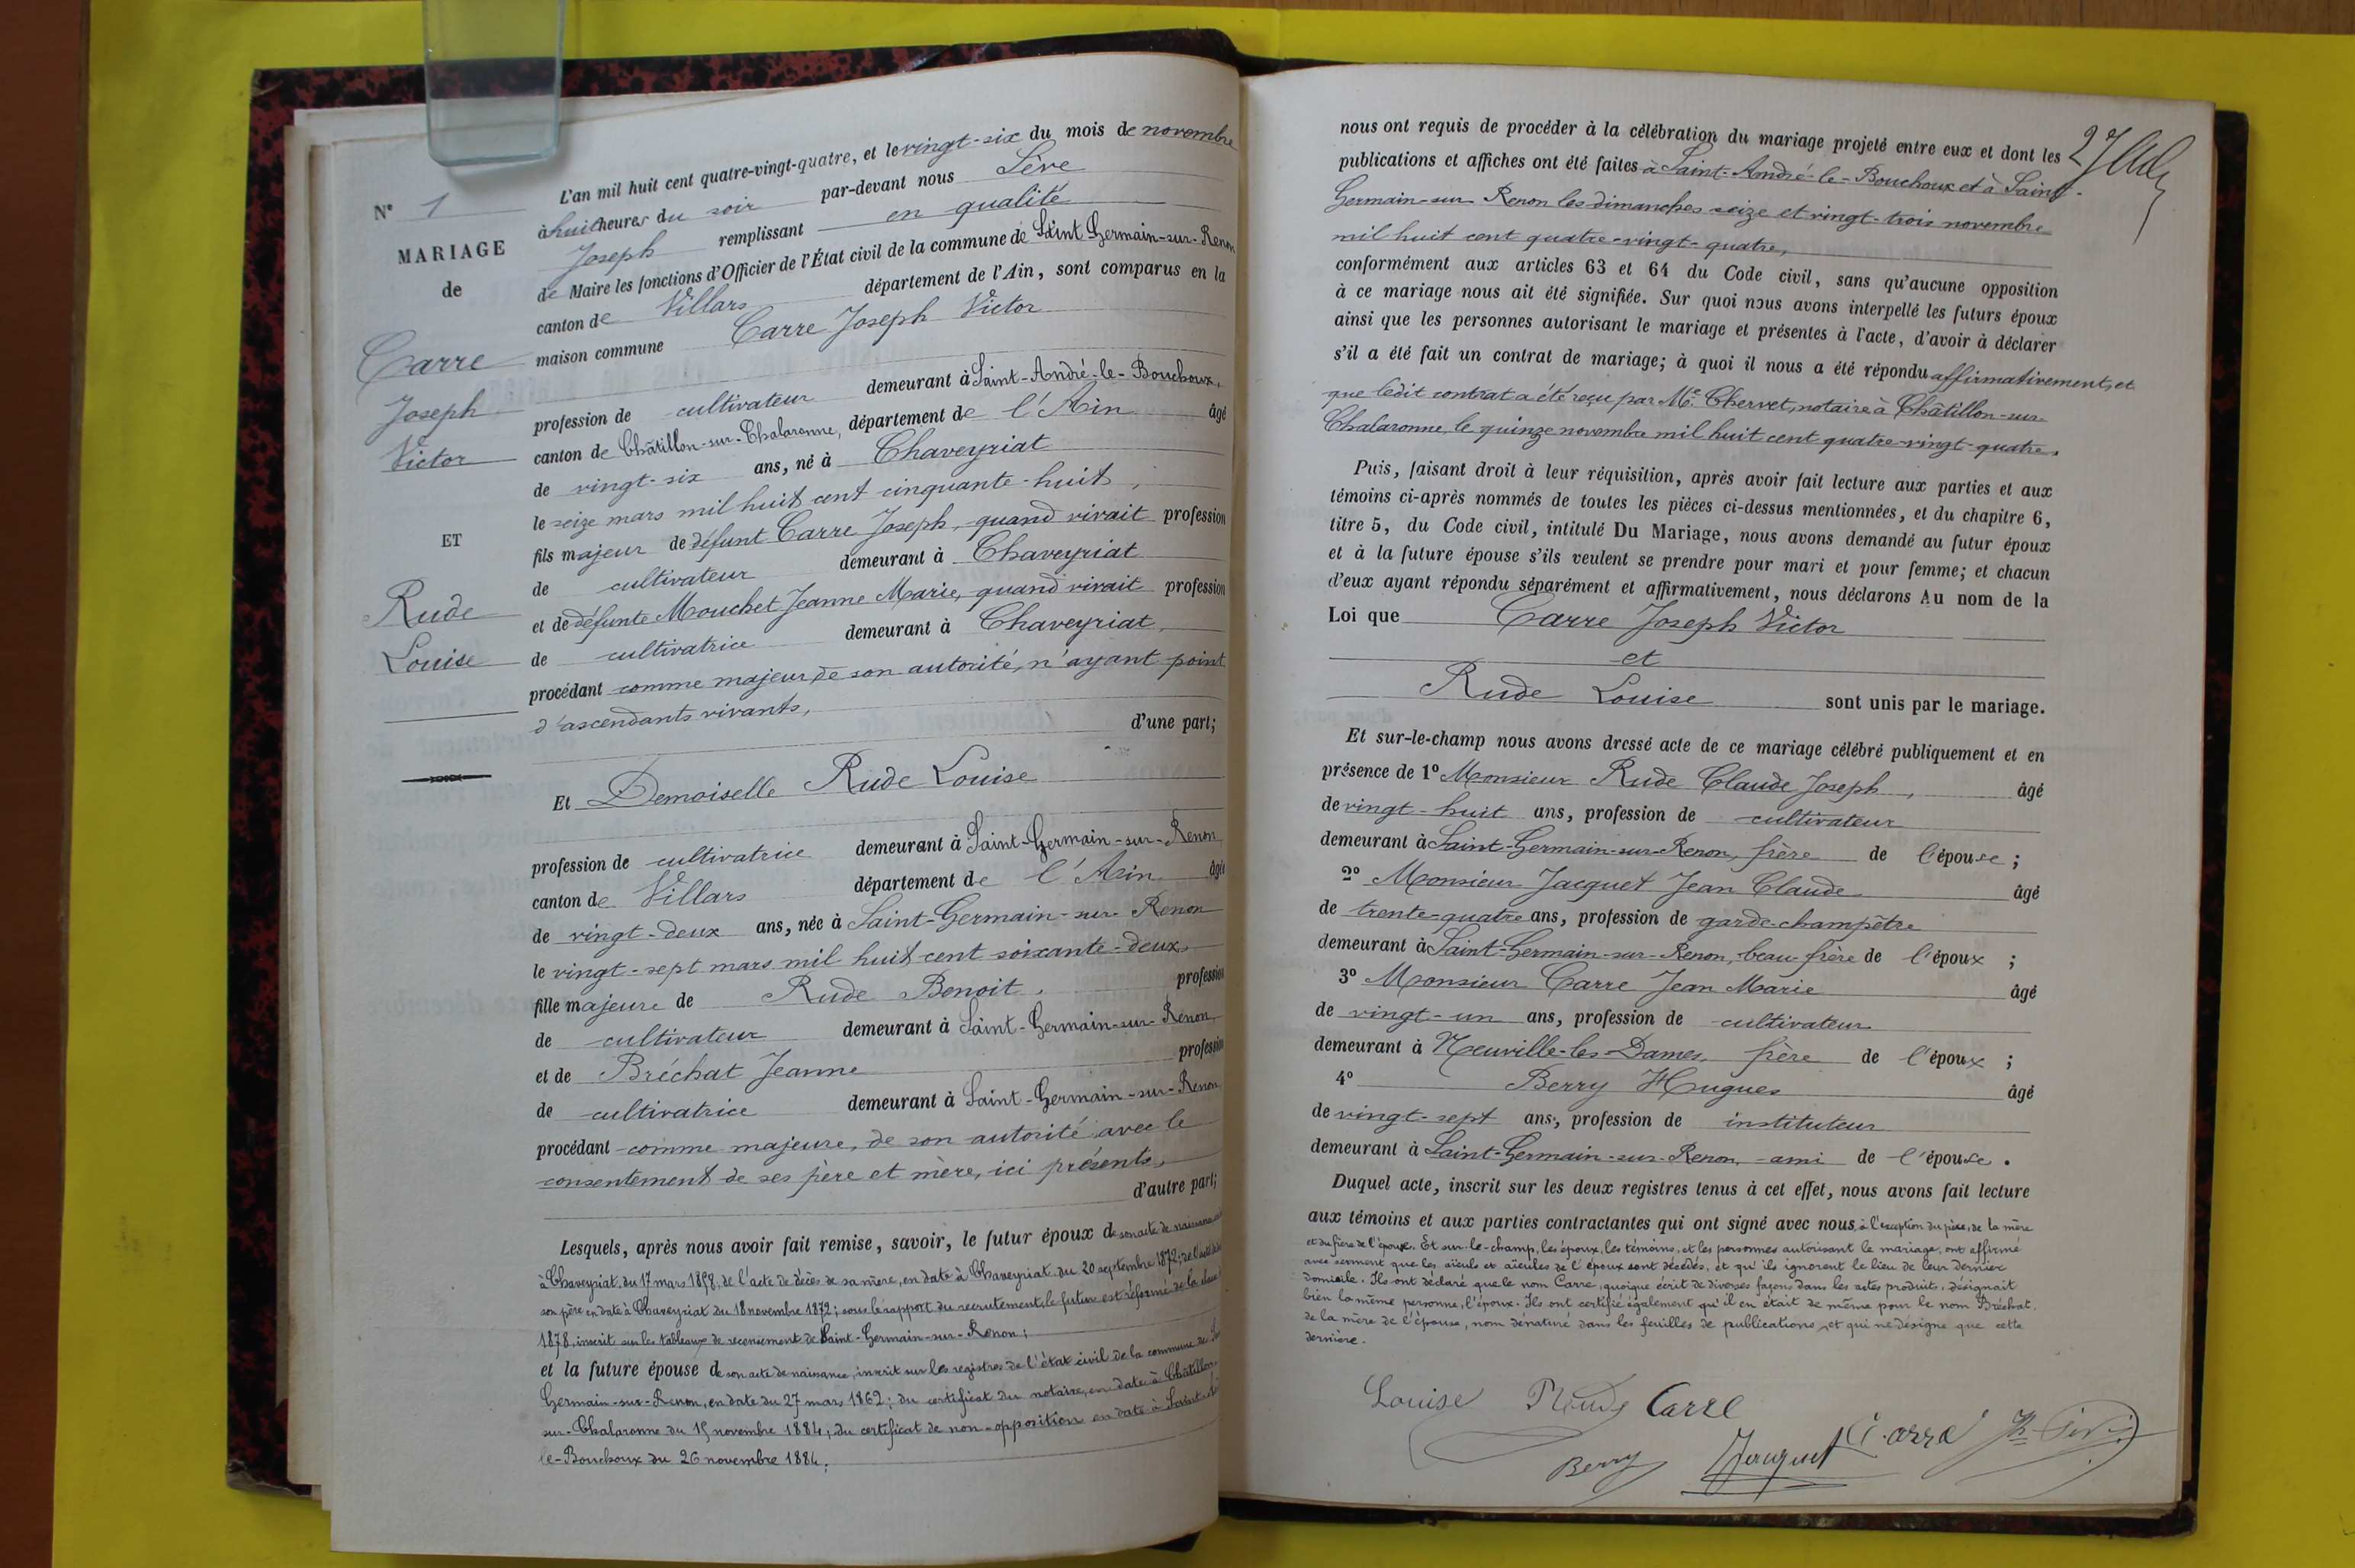 N° 1
MARIAGE
de
Carre
Joseph
Victor
ET
Rude
Louise
L'an mil huit cent quatre-vingt-quatre, et le vingt-six du mois de novembre
à huit heures du soir par-devant nous Sève
Joseph remplissant en qualité
de Maire les fonctions d'Officier de l'État civil de la commune de Saint Germain-sur-Renon
canton de Villars département de l'Ain, sont comparus en la
maison commune Carre Joseph Victor
profession de cultivateur demeurant à Saint-André-le-Bouchoux,
canton de Châtillon-sur-Chalaronne, département de l'Ain âgé
de vingt-six ans, né à Chaveyriat
le seize mars mil huit cent cinquante-huit,
fils majeur de défunt Carre Joseph, quand vivait profession
de cultivateur demeurant à Chaveyriat
et de défunte Mouchet Jeanne Marie, quand vivait profession
de cultivatrice demeurant à Chaveyriat,
procédant comme majeur, de son autorité, n'ayant point
d'ascendants vivants,
d'une part;
Et Demoiselle Rude Louise
profession de cultivatrice demeurant à Saint-Germain-sur-Renon,
canton de Villars département de l'Ain âgée
de vingt-deux ans, née à Saint-Germain-sur-Renon
le vingt-sept mars mil huit cent soixante-deux,
fille majeure de Rude Benoit, profession
de cultivateur demeurant à Saint-Germain-sur-Renon,
et de Bréchat Jeanne profession
de cultivatrice demeurant à Saint-Germain-sur-Renon,
procédant comme majeure, de son autorité avec le
consentement de ses père et mère, ici présents,
d'autre part;
Lesquels, après nous avoir fait remise, savoir, le futur époux de son acte de naissance
à Chaveyriat, du 17 mars 1858, de l'acte de décès de sa mère, en date à Chaveyriat du 20 septembre 1872; de l'acte
son père en date à Chaveyriat du 18 novembre 1872; sous le rapport du recrutement, le futur est réformé de la classe
1878, inscrit sur les tableaux de recensement de Saint-Germain-sur-Renon;
et la future épouse de son acte de naissance, inscrit sur les registres de l'état civil de la commune de
Germain-sur-Renon, en date du 27 mars 1862; du certificat du notaire, en date à Châtillon-
sur-Chalaronne du 15 novembre 1884; du certificat de non-opposition en date à Saint
le-Bouchoux du 26 novembre 1884;
nous ont requis de procéder à la célébration du mariage projeté entre eux et dont les
publications et affiches ont été faites à Saint-André-le-Bouchoux et à Saint-
Germain-sur-Renon les dimanches seize et vingt-trois novembre
mil huit cent quatre-vingt-quatre,
conformément aux articles 63 et 64 du Code civil, sans qu'aucune opposition
à ce mariage nous ait été signifiée. Sur quoi nous avons interpellé les futurs époux
ainsi que les personnes autorisant le mariage et présentes à l'acte, d'avoir à déclarer
s'il a été fait un contrat de mariage; à quoi il nous a été répondu affirmativement, et
que ledit contrat a été reçu par Me Chervet, notaire à Châtillon-sur-
Chalaronne, le quinze novembre mil huit cent quatre-vingt-quatre.
Puis, faisant droit à leur réquisition, après avoir fait lecture aux parties et aux
témoins ci-après nommés de toutes les pièces ci-dessus mentionnées, et du chapitre 6,
titre 5, du Code civil, intitulé Du Mariage, nous avons demandé au futur époux
et à la future épouse s'ils veulent se prendre pour mari et pour femme; et chacun
d'eux ayant répondu séparément et affirmativement, nous déclarons Au nom de la
Loi que Carre Joseph Victor
et
Rude Louise sont unis par le mariage.
Et sur-le-champ nous avons dressé acte de ce mariage célébré publiquement et en
présence de 1° Monsieur Rude Claude Joseph, âgé
de vingt-huit ans, profession de cultivateur
demeurant à Saint-Germain-sur-Renon, frère de l'épouse;
2° Monsieur Jacquet Jean Claude âgé
de trente-quatre ans, profession de garde-champêtre
demeurant à Saint-Germain-sur-Renon, beau-frère de l'époux;
3° Monsieur Carre Jean Marie âgé
de vingt-un ans, profession de cultivateur
demeurant à Neuville-les-Dames, frère de l'époux;
4° Berry Hugues âgé
de vingt-sept ans, profession de instituteur
demeurant à Saint-Germain-sur-Renon, ami de l'épouse.
Duquel acte, inscrit sur les deux registres tenus à cet effet, nous avons fait lecture
aux témoins et aux parties contractantes qui ont signé avec nous, à l'exception du père, de la mère
et du frère de l'épouse. Et sur-le-champ, les époux, les témoins, et les personnes autorisant le mariage, ont affirmé
avec serment que les aïeuls et aïeules de l'époux sont décédés, et qu'ils ignorent le lieu de leur dernier
domicile. Ils ont déclaré que le nom Carre, quoique écrit de diverses façons dans les actes produits, désignait
bien la même personne, l'époux. Ils ont certifié également qu'il en était de même pour le nom Bréchat,
de la mère de l'épouse, nom dénaturé dans les feuilles de publications, et qui ne désigne que cette
dernière.
Louise Rude Carre
Berry Jacquet Carre